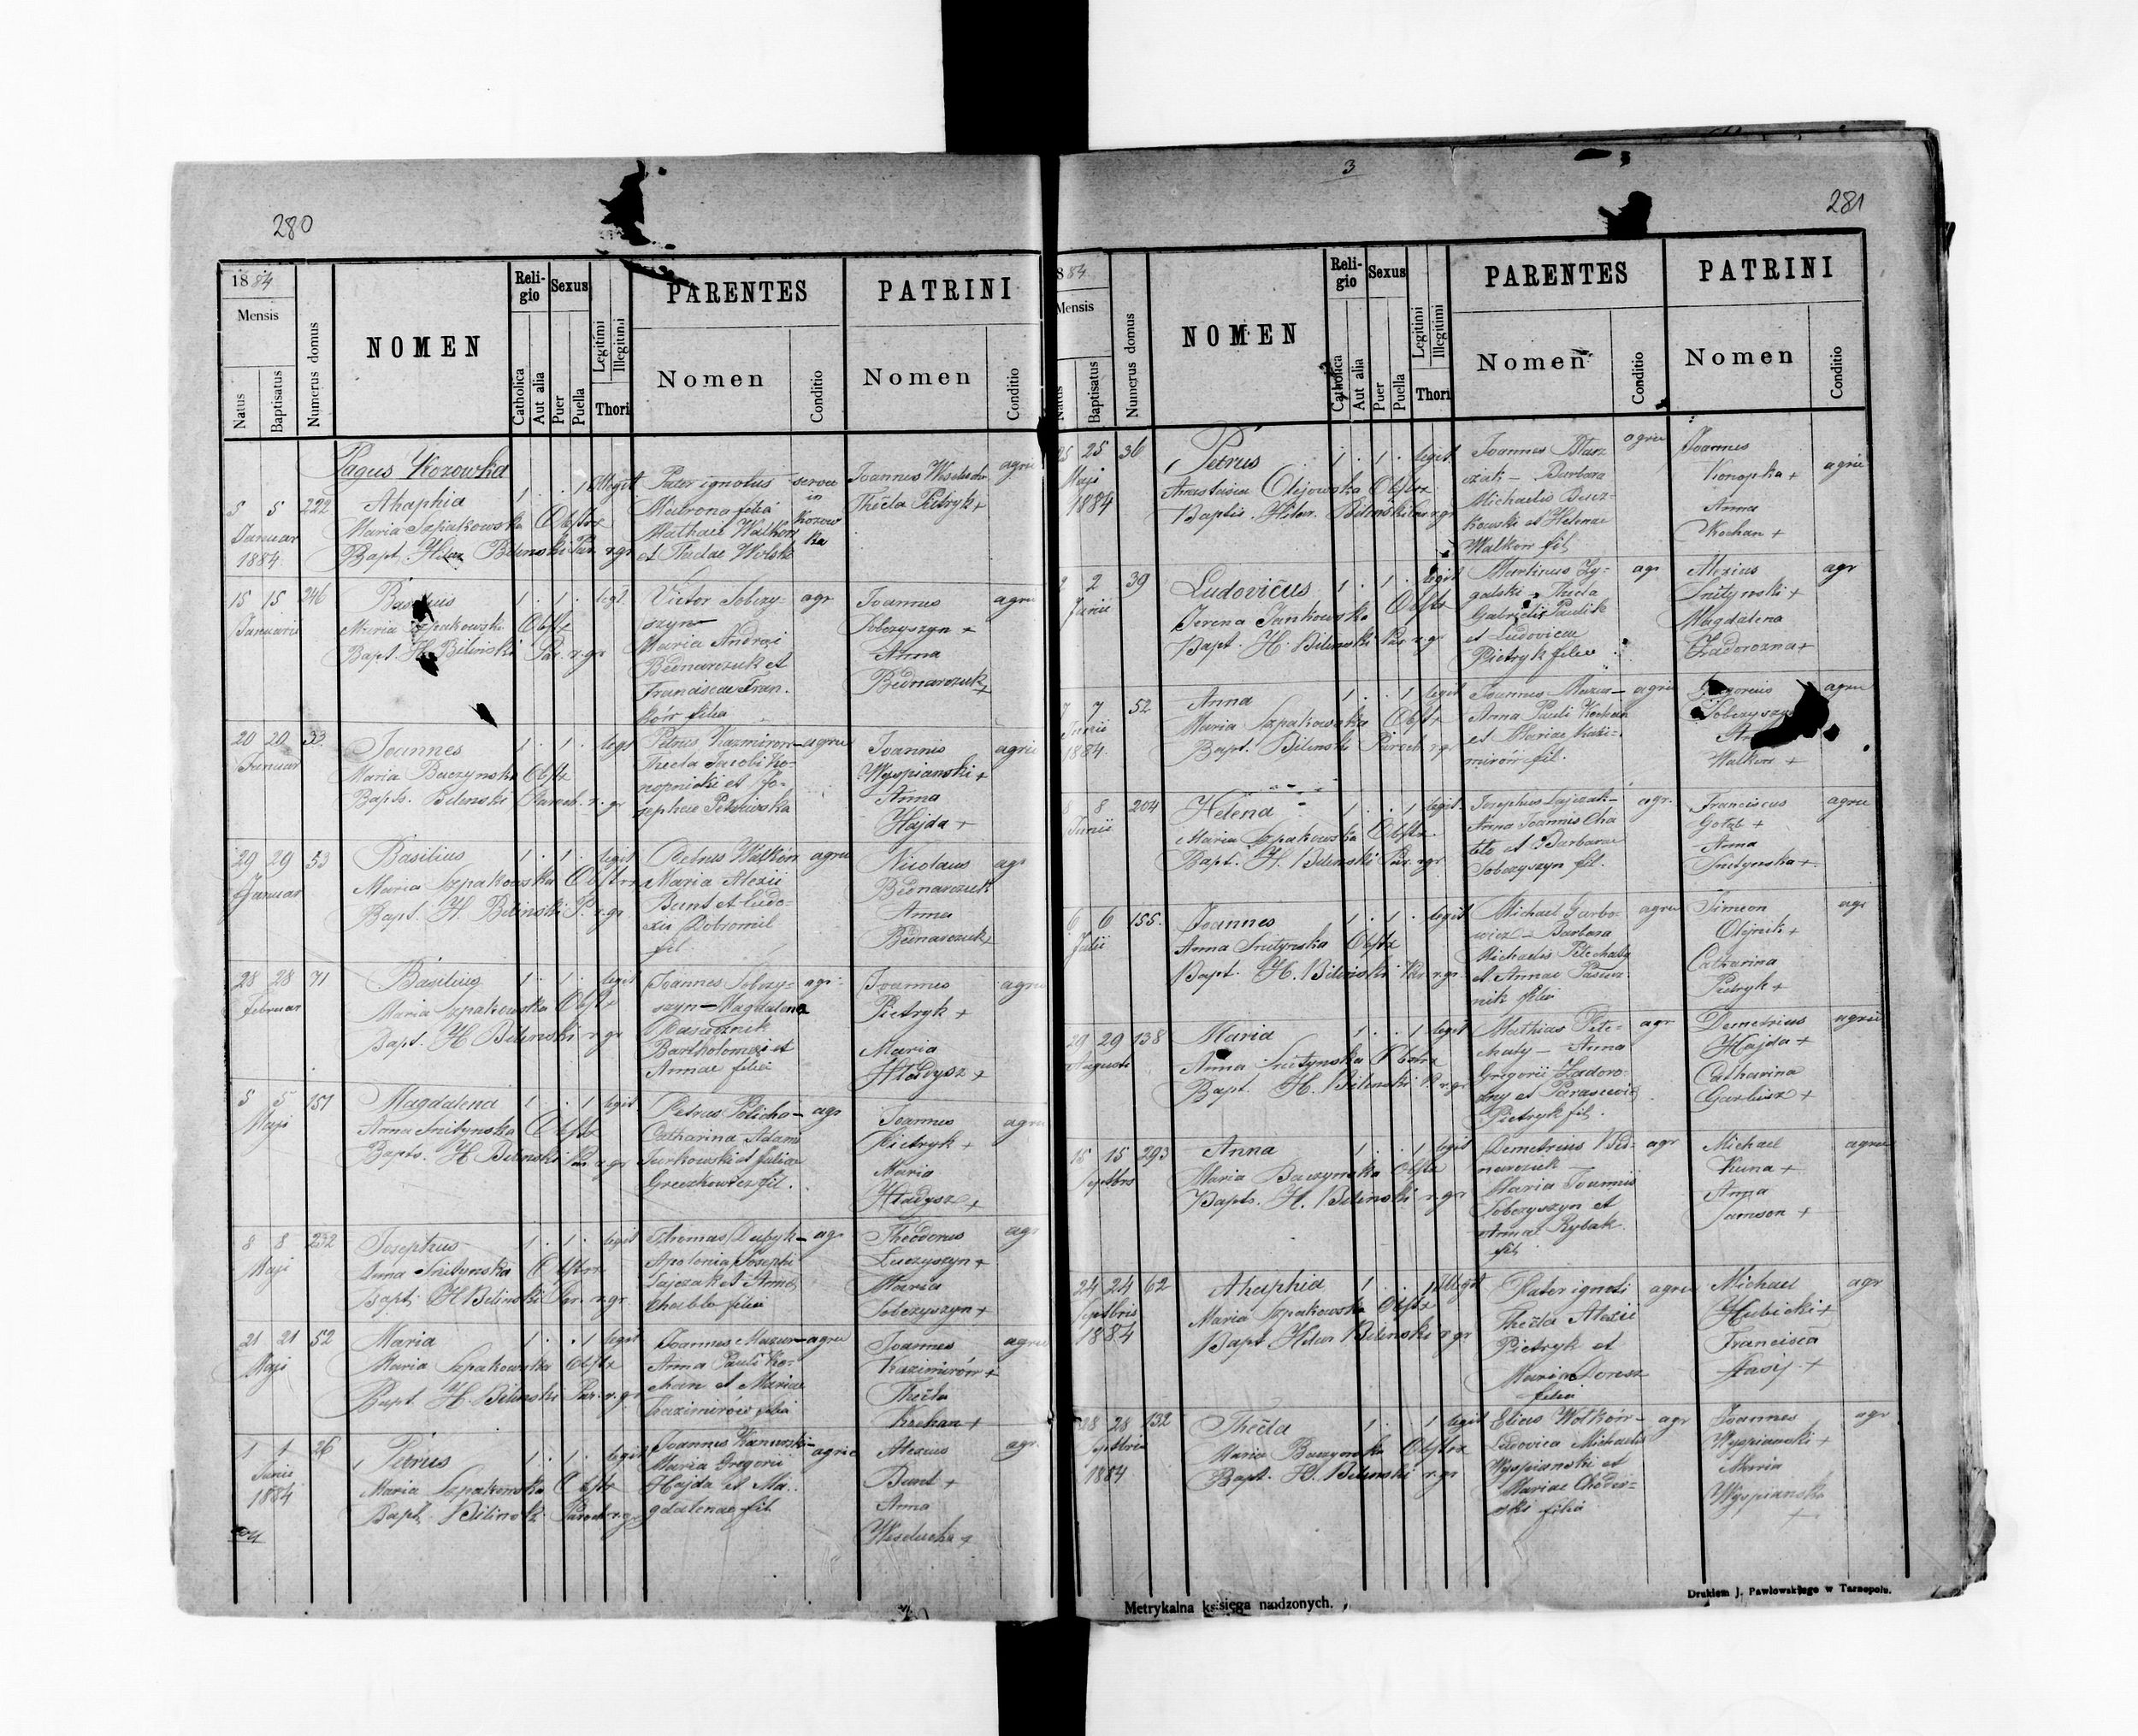 280
1884
Mensis
Natus
Baptisatus
Numerus domus
NOMEN
Reli-
gio
Catholica
Aut alia
Sexus
Puer
Puella
Legitimi
Illegitimi
Thori
PARENTES
Nomen
Conditio
PATRINI
Nomen
Conditio
Pagus Kozowka
5 5 222
Januar
1884
Ahaphia
Maria Szpakowska Obstr
Bapt. Hilar Bilinski Par. r. gr
1 . . 1 Illegit
Pater ignotus
Matrona filia
Mathaei Walkow
in
Kozow
ka
Joannes
Thecla Pietryk +
agric
15 15 246
Januarii
Maria Szpakowski Obstr
Bapt. H. Bilinski Par. r. gr
1 . 1 . legt.
Victor Sobczy-
szyn
Maria Andrei
Bednarczuk et
Franciscae Fran.
ków filia
agr
Joannes
Sobczyszyn +
Anna
Bednarczuk +
agric
20 20 33
Januar
Joannes
Maria Buczynska Obstr
Bapts. Bilinski Paroch. r. gr
1 . 1 . legt
Petrus Kazmirow-
Thecla Jacobi Ko-
nopnicki et Jo-
sephae
agric
Joannis
Wyspianski +
Anna
Hajda +
agric
29 29 53
Januar
Basilius
Maria Szpakowska Obstr
Bapt. H. Bilinski P. r. gr.
1 . 1 . legit
Petrus Walków
Maria Alexii
Bunt et Eudo-
xii Dobromil
fil
agric
Nicolaus
Bednarczuk
Anna
Bednarczuk +
agr
28 28 71
Februar
Basilius
Maria Szpakowska Obstr
Bapt. H Bilinski r. gr
1 . 1 . legit
Joannes Sobczy-
szyn - Magdalena
Bartholomei et
Annae filia
agr
Joannes
Pietryk +
Maria
Hładysz +
agric
5 5 151
Maji
Magdalena
Anna Snitynska Obstr
Bapts. H Bilinski Par r gr
1 . . 1 legit
Petrus Policha-
Catharina Adami
Jurkowski et Juliae
fil.
agr
Joannes
Pietryk +
Maria
Hładysz +
agric
8 8 232
Maji
Josephus
Anna Snitynska Obstr
Bapt. H Bilinski Par. r. gr.
1 . 1 . legit
Thomas
Apolonia Josephi
Łajczak et Annae
Chabla filia
agr
Theodorus
Luczyszyn +
Maria
Sobczyszyn +
agr
21 21 52
Maji
Maria
Maria Szpakowska Obstr
Bapt. H. Bilinski Par. r. gr
1 . . 1 legit
Joannes Mazur-
Anna Pauli Ko-
chan et Mariae
Kazimirów filia
agric
Joannes
Kazimirów +
Thecla
Kochan +
agric
1 1 26
Junii
1884
Petrus
Maria Szpakowska Obstr
Bapt. Bilinski Paroch r. gr
1 . 1 . legit
Joannes
Maria Gregorii
Hajda et Ma-
gdalenae fil
agric
Alexius
Bunt +
Anna
Weselucha +
agr.
3
281
84
Mensis
Natus
Baptisatus
Numerus domus
NOMEN
Reli-
gio
Catholica
Aut alia
Sexus
Puer
Puella
Legitimi
Illegitimi
Thori
PARENTES
Nomen
Conditio
PATRINI
Nomen
Conditio
25 25 36
Maji
1884
Petrus
Anastasia Olijowska Obstr
Baptis. Hilar. Bilinski Par r gr
1 . 1 . legit.
Joannes Blasz
czak - Barbara
Michaelis Bucz-
kowski et Helenae
Walkow fil
agric
Joannes
Konopka +
Anna
Kochan +
agric
2 2 39
Junii
Ludovicus
Irena Jankowska Obstr
Bapt. H. Bilinski Par. r. gr
1 . 1 . legit
Martinus Zy-
galski - Thecla
Gabrielis Paulik
et Ludovicae
Pietryk filia
agr
Alexius
Snitynski +
Magdalena
Zadorozna +
agr
7 7 52
Junii
1884
Anna
Maria Szpakowska Obstr
Bapt. Bilinski Paroch r. gr
1 . . 1 legit
Joannes Mazur-
Anna Pauli Kochan
et Mariae Kazi-
mirów fil.
agric
Walkow +
agric
8 8 204
Junii
Helena
Maria Szpakowska Obstr.
Bapt. H. Bilinski Par. r gr
1 . . 1 legit.
Josephus Łajczak-
Anna Joannis Cha
bla et Barbarae
Sobczyszyn fil.
agr.
Franciscus
Gołab +
Anna
Snitynska +
agric
6 6 155
Julii
Joannes
Anna Snitynska Obstr
Bapt. H. Bilinski Par r. gr.
1 . 1 . legit
Michael Garbo-
wicz - Barbara
Michaelis Petechaty
et Annae
filia
agric
Simeon
Olijnik +
Catharina
Pietryk +
agr
29 29 138
Augusti
Maria
Anna Snitynska Obstr
Bapt. H. Bilinski P. r. gr
1 . . 1 legit
Mathias Pete-
chaty - Anna
Gregorii Zadoro-
zny et Parascevia
Pietryk fil.
agr
Demetrius
Hajda +
Catharina
+
agric
15 15 293
Septbris
Anna
Maria Buczynska Obstr
Bapts. H. Bilinski r. gr
1 . . 1 legit
Demetrius Bed-
narczuk -
Maria Joannis
Sobczyszyn et
Annae Rybak
fil
agr
Michael
Kuna +
Anna
Jamson +
agric
24 24 62
Septbris
1884
Ahaphia
Maria Szpakowska Obstr
Bapt Hilar Bilinski r gr
1 . . 1 Illegit
Pater ignoti
Thecla Alexii
Pietryk et
Maria
filia
agric
Michael
Hubicki +
Francisca
+
agr
28 28 132
Septbris
1884
Thecla
Maria Buczynska Obstr
Bapt. H. Bilinski r. gr
1 . . 1 legit
Elias Wołków-
Ludovica Michaelis
Wyspianski et
Mariae
filia
agr
Joannes
Wyspianski +
Maria
Wyspianska
+
agr
Metrykalna księga narodzonych.
Drukiem J. Pawłowskiego w Tarnopolu.